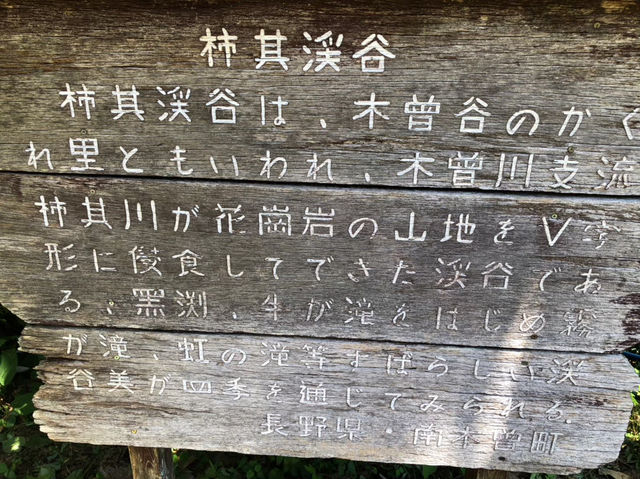 柿其渓谷
柿其渓谷は、木曽谷のかく
れ里ともいわれ、木曽川支流
柿其川が花崗岩の山地をV字
形に侵食してできた渓谷であ
る、黒渕、牛が滝をはじめ霧
が滝、虹の滝等すばらしい渓
谷美が四季を通じてみられる.
長野県・南木曽町